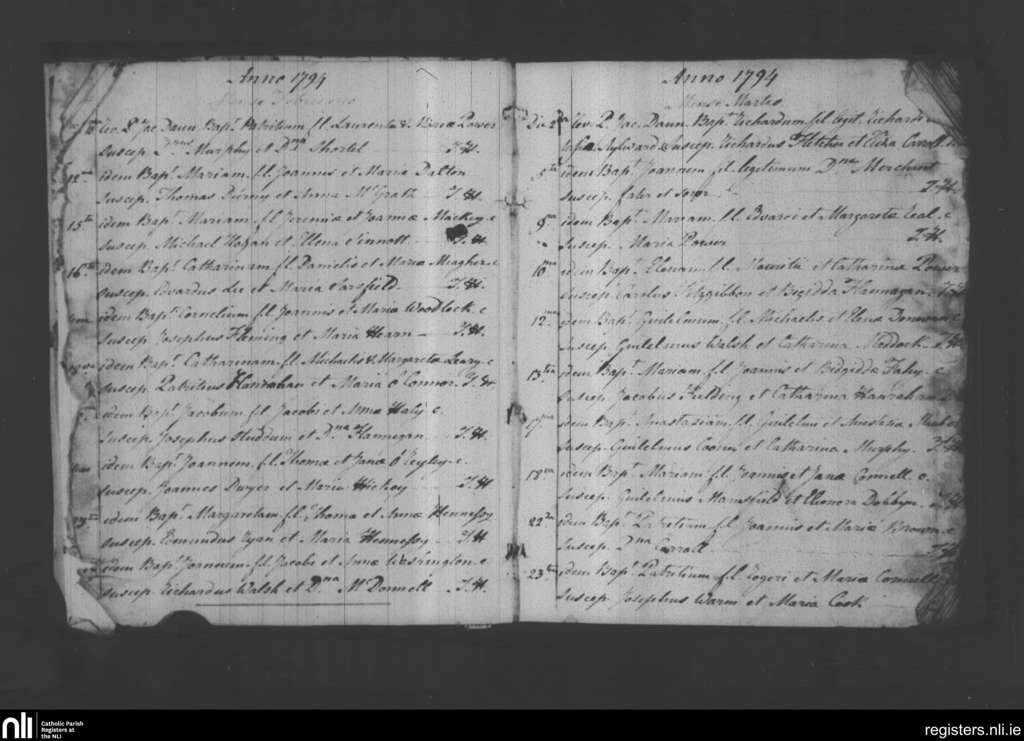 Anno 1794
Mense Februario
Rev. P. Jac. Daun Bapt. Patritium fl. Laurentii & Mariæ Power
Suscep. Dnus Murphy et Dna Shortel T.H.
12 idem Bapt. Mariam fl. Joannis et Maria Dalton
Suscep. Thomas et Anna McGrath T.H.
15 idem Bapt. Mariam fl. Jeremiæ et Joannæ Mackey c
Suscep. Michael Hogan et Elena Sinnott T.H.
16 idem Bapt. Catharinam fl. Danielis et Mariæ Meagher c
Suscep. Edvardus Lee et Maria Sarsfield T.H.
idem Bapt. Cornelium fl. Joannis et Maria Woodlock c
Suscep. Josephus Fleming et Maria Hearn T.H.
idem Bapt. Catharinam fl. Michaelis & Margareta Leary c
Suscep. Patritius Hanrahan et Maria O'Connor T.H.
idem Bapt. Jacobum fl. Jacobi et Anna Haly c
Suscep. Josephus et Dna Flannegan T.H.
idem Bapt. Joannem fl. Thomæ et Jana c
Suscep. Joannes Dwyer et Maria Hickey T.H
idem Bapt. Margaretam fl. Thoma et Annæ Hennessy
Suscep. Edmundus Ryan et Maria Hennessy T.H
idem Bapt. Joannem fl. Jacobi et Annæ Washington c
Suscep. Richardus Walsh et Dna McDonnell T.H.
Anno 1794
Mense Martio
Die 2a Rev. P. Jac. Daun Bapt. Richardum fil. legit. Richardi
Aylward Suscep. Richardus Fletcher et Carroll
5ta idem Bapt. Joannem fil. legitimum Dna Merchant
Suscep. frater et soror T.H.
9na idem Bapt. Mariam fl. Edvardi et Margareta c
Suscep. Maria Power T.H.
10ma idem Bapt. Elenam fl. Mauritii et Catharina Power
Suscep. Carolus Fitzgibbon et Brigidda Flannagan T.H
12ma idem Bapt. Guilelmum fl. Michaelis et Elena c
Suscep. Guilelmus Walsh et Catharina Maddock T.H
13tia idem Bapt. Mariam fl. Joannis et Bridgidda Fahy c
Suscep. Jacobus Fielding et Catharina Hanrahan
17ma idem Bapt. Anastasiam fl. Guilelmi et Anastasia
Suscep. Guilelmus et Catharina Murphy T.H
18va idem Bapt. Mariam fl. Joannis et Janæ Connell c.
Suscep. Guilelmus Mansfield et Eleonora Dobbyn
22da idem Bapt. Patritium fl. Joannis et Maria Brown c
Suscep. Dna Carroll T.H
23tia idem Bapt. Patritium fl. Rogeri et Maria Connell
Suscep. Josephus et Maria Cook
nli
Catholic Parish
Registers at
the NLI
registers.nli.ie